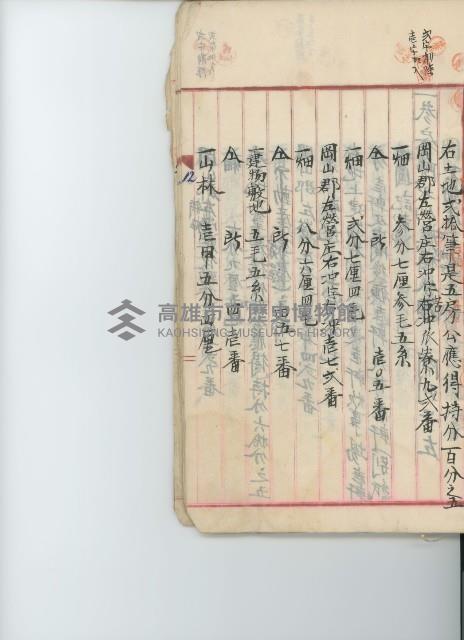 弐字削除
壱字加入
右土地弐拾筆是五房公應得持分百分之五
岡山郡左營庄右冲字右冲九弐番
一畑 参分七厘参毛五糸
仝所 壱〇五番
一畑 弐分七厘四毛
岡山郡左營庄右冲字右冲壱七弐番
一畑 八分六厘四毛
仝所 四五七番
一建物敷地 五毛五糸
仝所 四壱番
一山林 壱甲五分四厘
12
高雄市立歷史博物館
KAOHSIUNG MUSEUM OF HISTORY